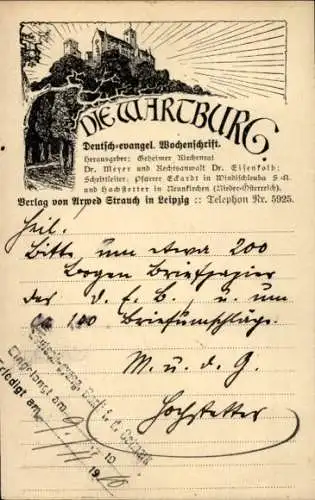 DIE WARTBURG
Deutsch-evangel. Wochenschrift.
Herausgeber: Geheimer Kirchenrat
Dr. Meyer und Rechtsanwalt Dr. Eisenkolb:
Schriftleiter: Pfarrer Eckardt in Windischleuba S-A.
und Hochstetter in Neunkirchen (Nieder-Österreich).
Verlag von Arwed Strauch in Leipzig :: Telephon Nr. 5925.
Heil.
Bitte um etwa 200
Bogen Briefpapier
des d. e. B., u. um
ca 100 Briefumschläge.
M. u. d. G.
Hochstetter
Eingelangt am
Erledigt am